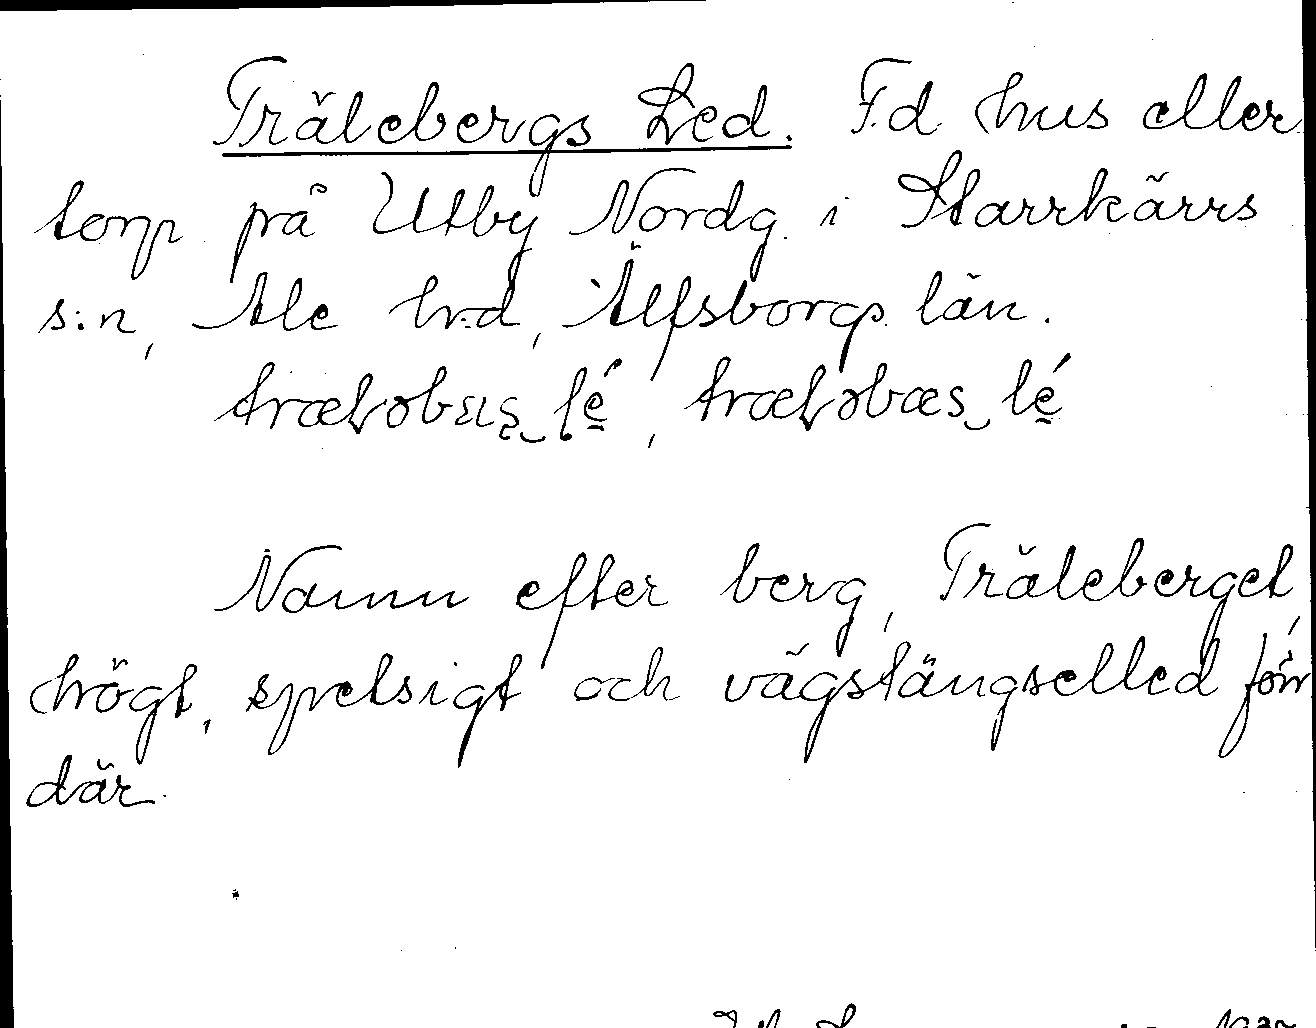 Trälebergs Led. F.d. hus eller
torp på Utby Nordg. i Starrkärrs
s:n, Ale h:d, Älfsborgs län.
Namn efter berg, Träleberget,
högt, spetsigt och vägstängselled förr
där.